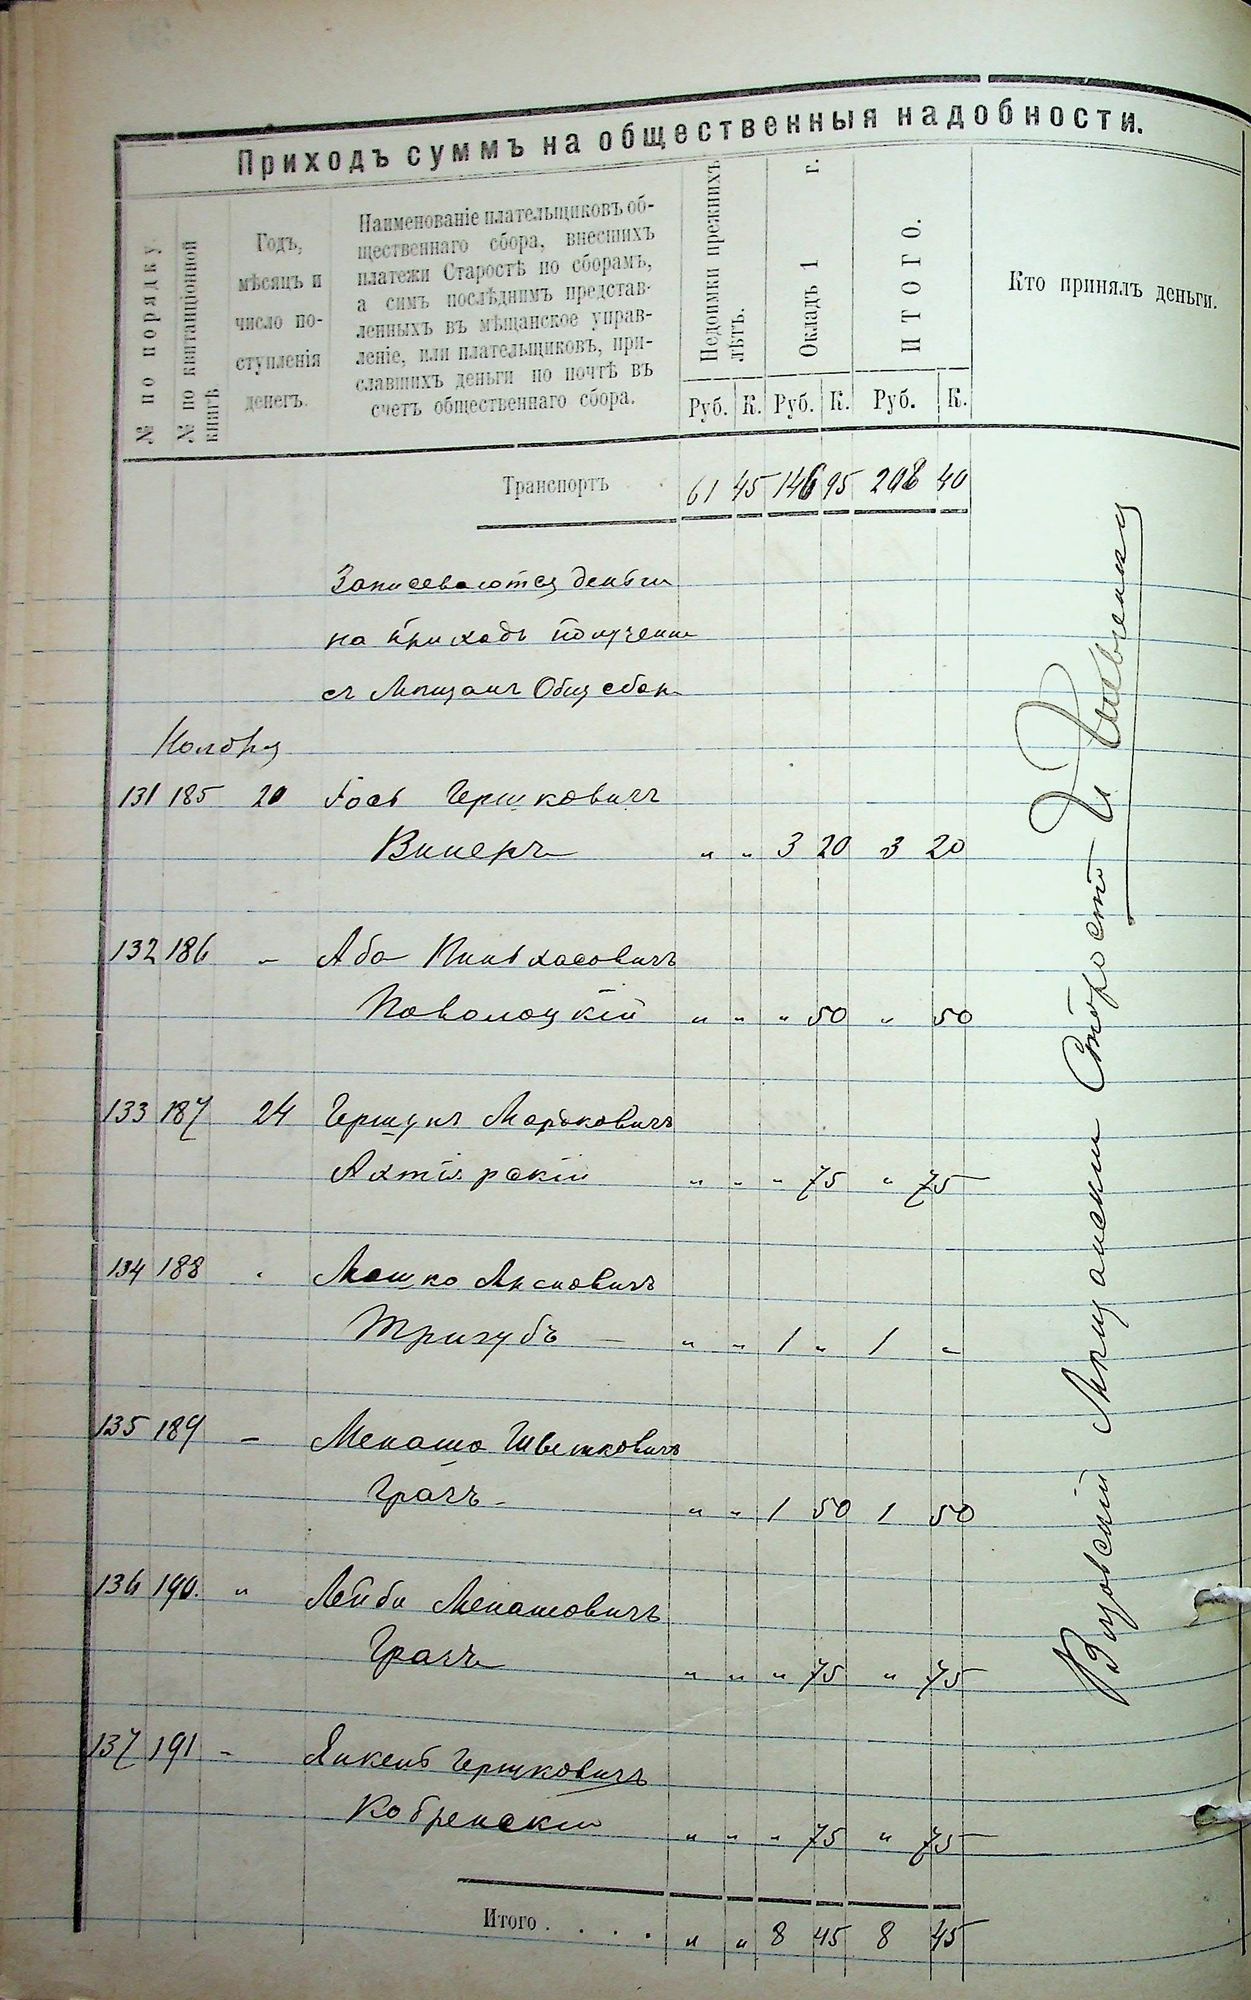 Приходъ суммъ на общественныя надобности.
№ по порядку
№ по квитанціонной книгѣ
Годъ,
мѣсяцъ и
число по-
ступленія
денегъ.
Наименованіе плательщиковъ об-
щественнаго сбора, внесшихъ
платежи Старостѣ по сборамъ,
а симъ послѣднимъ представ-
ленныхъ въ мѣщанское управ-
леніе, или плательщиковъ, при-
славшихъ деньги по почтѣ въ
счетъ общественнаго сбора.
Недоимки прежнихъ лѣтъ.
Окладъ 1 г.
ИТОГО.
Кто принялъ деньги.
Руб. К. Руб. К. Руб. К.
Транспортъ 61 45 146 95 208 40
Записеваются деньги
на приходъ получени
съ Мѣщанъ Общ сбон
Ноября
131 185 20 Іось Гершковичъ
Винеръ " " 3 20 3 20
132 186 " Аба Пиньхасовичъ
Поволоцкій " " " 50 " 50
133 187 24 Гершунъ Марьковичъ
Ахтірскій " " " 75 " 75
134 188 " Мошко
Тригубъ — " " 1 " 1 "
135 189 — Менаша
Грачъ " " 1 50 1 50
136 190. " Лейба Менашовичъ
Грачъ " " " 75 " 75
137 191 — Янкель Гершковичъ
Кобренскій " " " 75 " 75
Итого . . . . " " 8 45 8 45
Мѣщански Старость